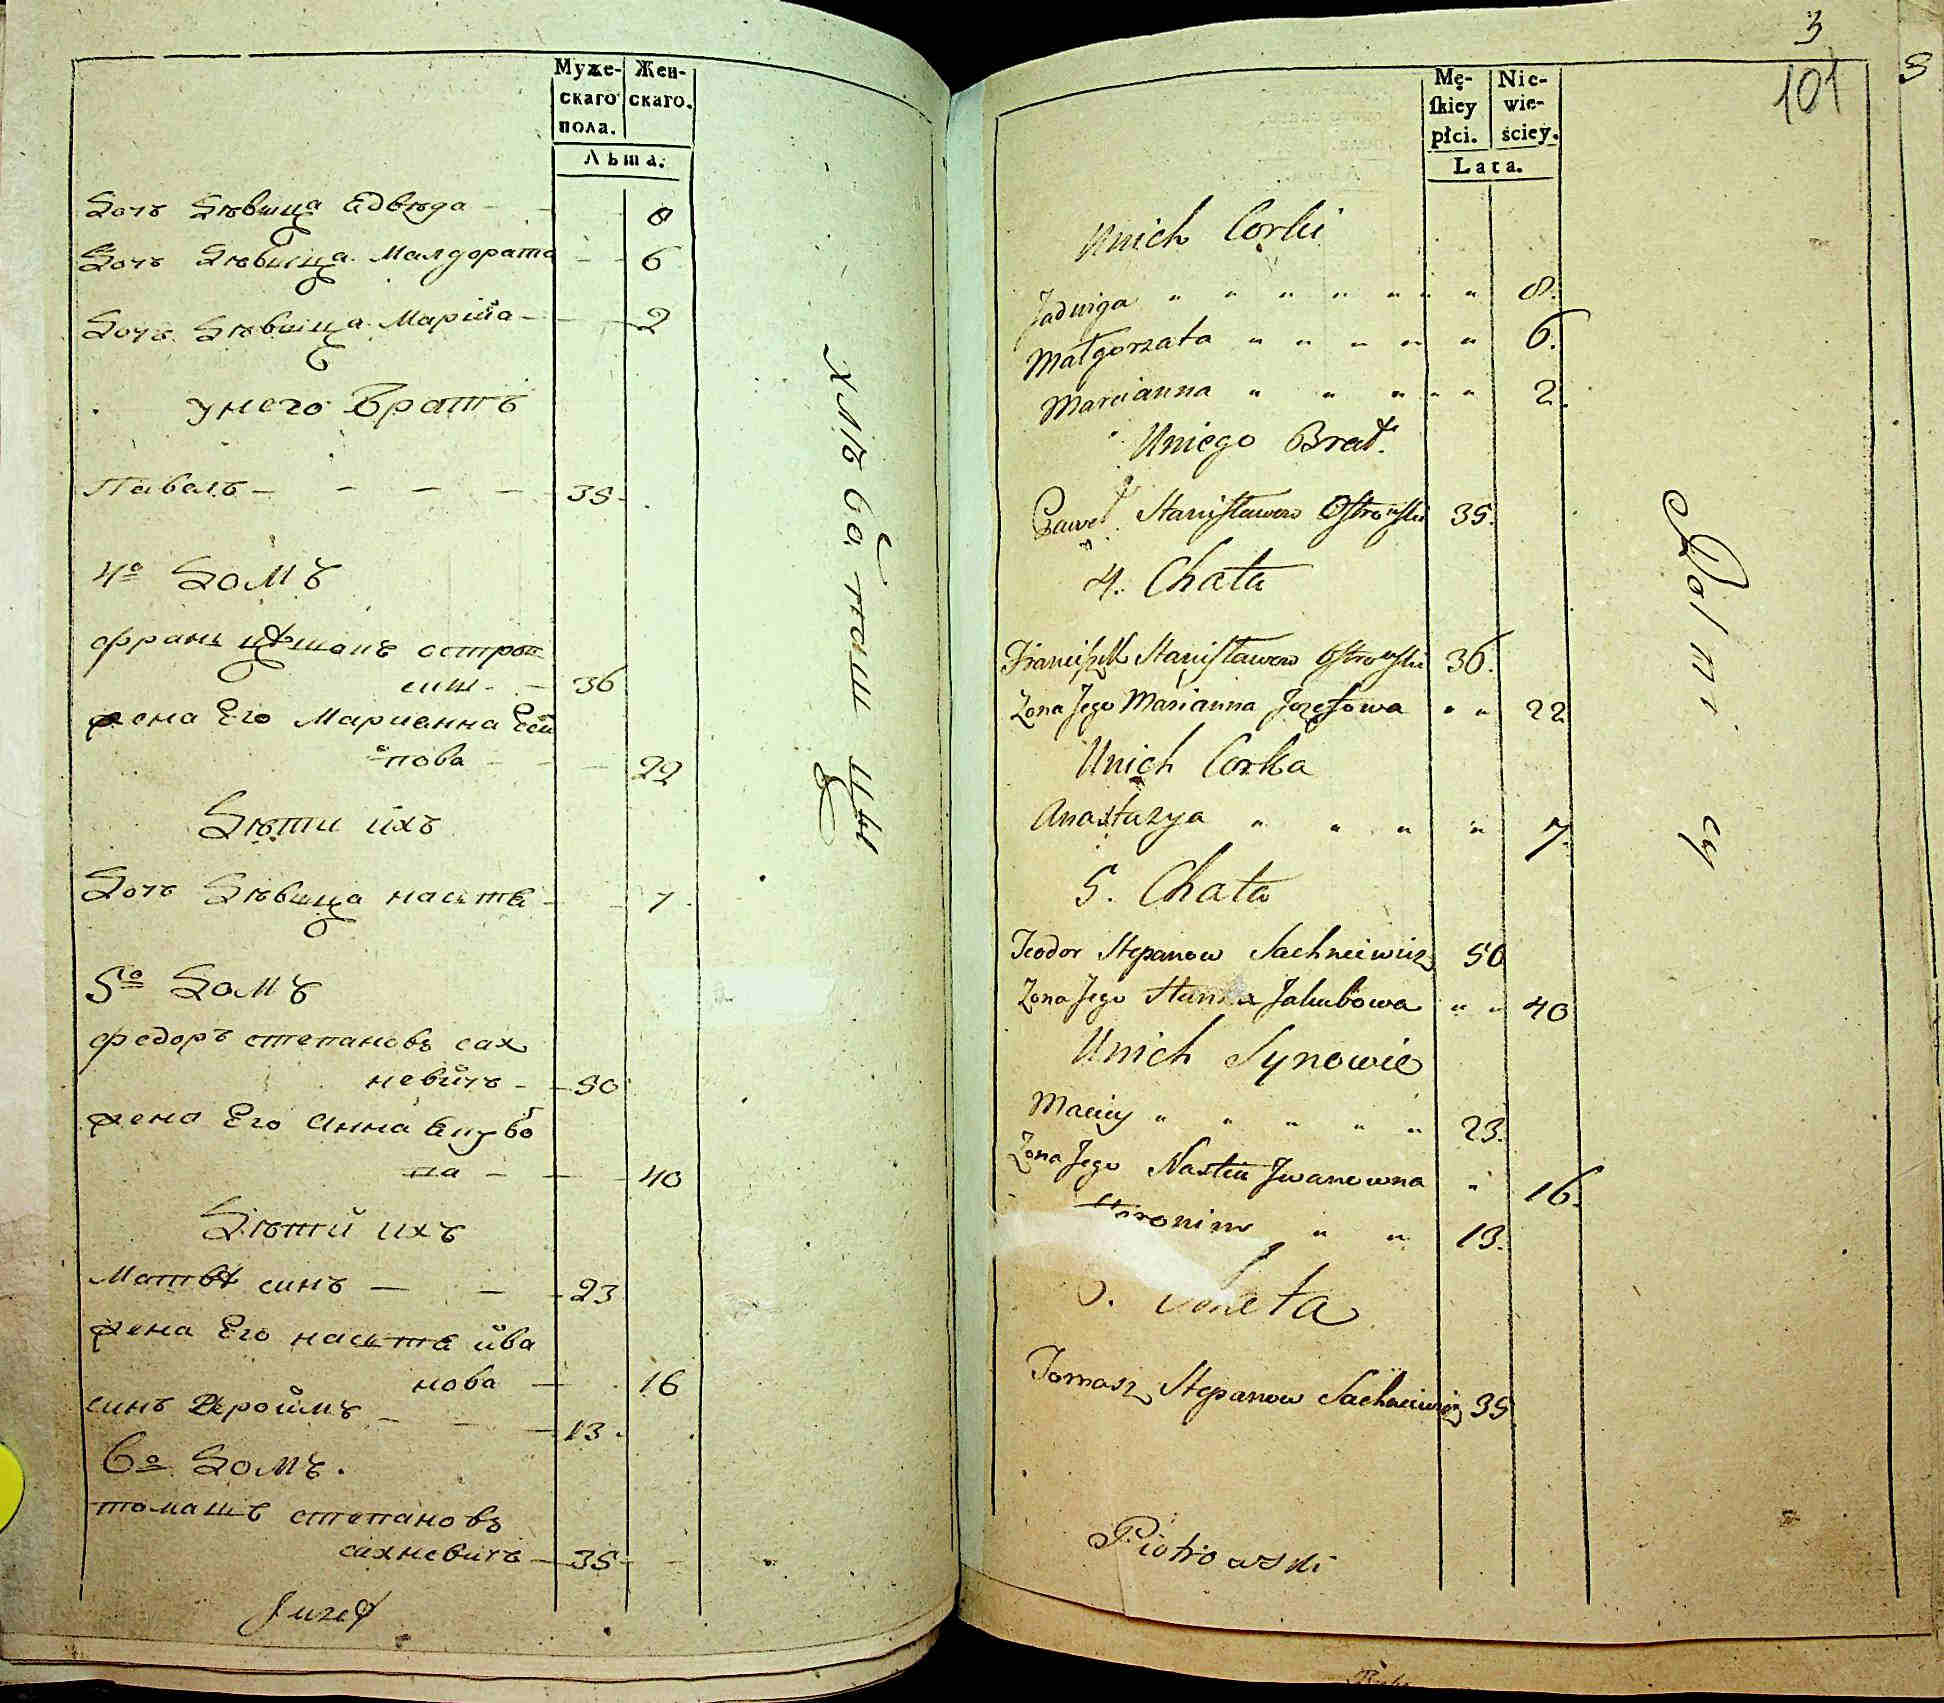 Муже-
скаго
пола.
Жен-
скаго.
Лѣта.
Дочь Дѣвица Едвѣга - - 8
Дочь Дѣвица Малгората - - 6
Дочь Дѣвица Мариïа - - 2
у него Братъ
Павалъ - - - - 35
4º Домъ
остров
ски - - 36
жена Его Марианна Есïи
пова - - - 22
Дѣти ихъ
Дочь Дѣвица настя - - 7
5º Домъ
федоръ степановъ сах
невичъ - - 50
жена Его Анна
на - - - 40
Дѣтй ихъ
Матвей синъ - - - 23
жена Его настя ива
нова - - 16
синъ - - - 13
6º Домъ.
томашъ степановъ
сахневичъ - 35 -
Juzef
хлѣбо пашцы
3
101
Mę-
ſkiey
płci.
Nie-
wie-
ściey.
Lata.
Unich Corki
Jadwiga " " " " " " " 8.
Małgorzata " " " " " 6.
Marcianna " " " " " 2.
Uniego Brat.
Paweł Stanisławow Ostrowski 35.
4. Chata
Franciszek Stanisławow Ostrowski 36.
Zona Jego Marianna Jozefowa " " 22
Unich Corka
Anastazya " " " " 7.
5. Chata
Teodor Stepanow Sachneiwicz 50
Zona Jego Jakubowa " " 40
Unich Synowie
Maciey " " " " " 23.
Zona Jego Nastia Jwanowna " 16.
Hironim " " 13.
Chata
Tomasz Stepanow Sachneiwicz 35
Piotrowski
Rolnicy